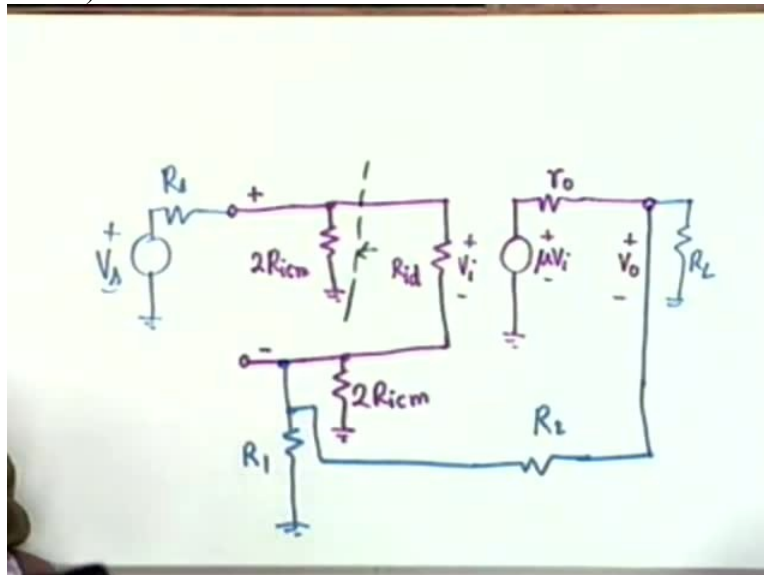 Rs
+
ro
+
Vs
2Ricm
Rid
+
Vi
-
+
μVi
-
+
Vo
-
RL
-
2Ricm
R1
R2